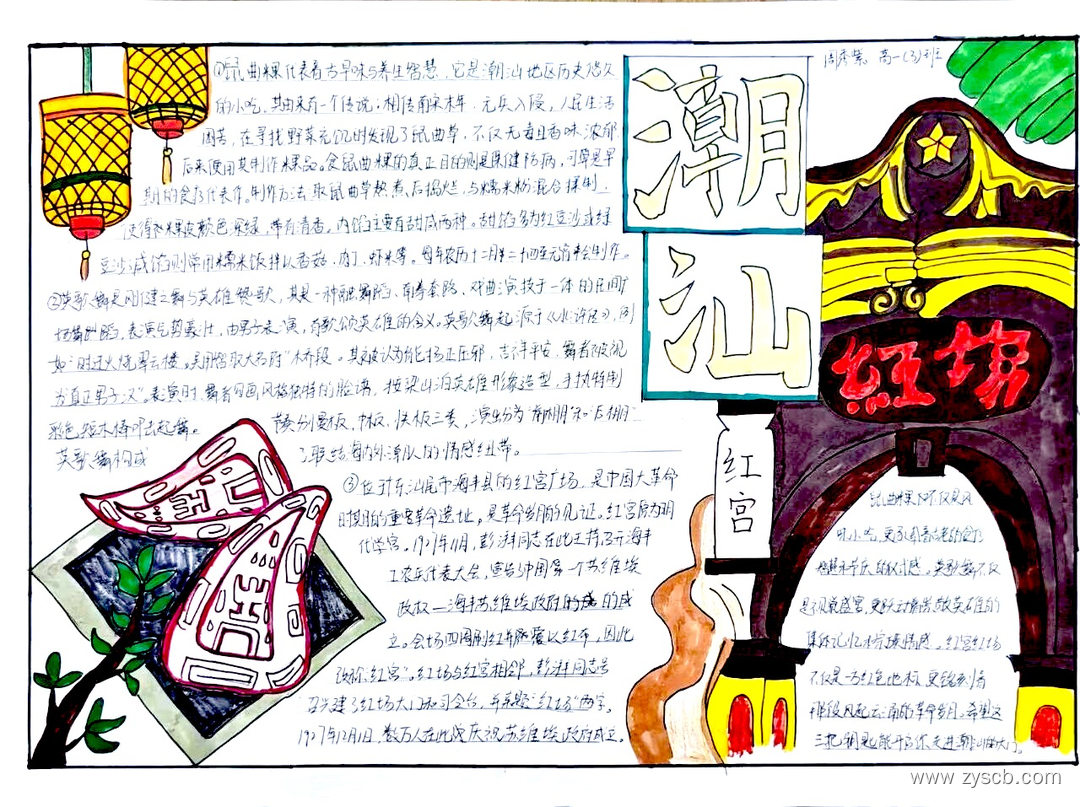 周彦紫 高一(3)班
潮
汕
①鼠曲粿代表着古早味与养生智慧,它是潮汕地区历史悠久
的小吃,其由来有一个传说,相传南宋末年,元兵入侵,人民生活
困苦,在寻找野菜充饥时发现了鼠曲草,不仅无毒且香味浓郁
后来便用其制作粿品。食鼠曲粿的真正目的则是保健防病,可算是早
期的食疗代表作。制作方法:取鼠曲草熬煮后捣烂,与糯米粉混合揉制,
使得粿皮颜色深绿,带有清香。内馅主要有甜咸两种。甜馅多为红豆沙或绿
豆沙,咸馅则常用糯米饭拌以香菇、肉丁、虾米等。每年农历十二月廿二十四至元宵
②英歌舞是刚健之舞与英雄赞歌,其是一种融舞蹈、南拳套路、戏曲演技于一体的民间广
场舞蹈,表演气势豪壮,由男子表演,有歌颂英雄的含义。英歌舞起源于《水浒传》,例
如"时迁火烧翠云楼。吴用智取大名府"桥段。其被认为能扬正压邪,吉祥平安,舞者被视
为"真正男子汉"。表演时,舞者勾画风格独特的脸谱,按梁山泊英雄形象造型,手执特制
彩色短木棒
节奏分慢板、中板、快板三类,演出分为"前棚"和"后棚"
英歌舞构成
了联结海内外潮人的情感纽带。
③位于广东汕尾市海丰县的红宫广场,是中国大革命
时期的重要革命遗址,是革命岁月的见证。红宫原为明
代学宫,1927年11月,彭湃同志在此主持召开海丰
工农兵代表大会,宣告中国第一个苏维埃
政权—海丰苏维埃政府的成
立。会场四周刷红并覆以红布,因此
改称"红宫"。红场与红宫相邻,彭湃同志号
召兴建了红场大门和司令台,并亲题"红场"两字。
1927年12月1日,数万人在此庆祝苏维埃政府成立。
红场
红宫
鼠曲粿不仅是风
味小吃,更
英歌舞不仅
是视觉盛宴,更
英雄的
集体记忆和情感。红宫红场
不仅是一方红色地标,更镌刻着
那段风起云涌的革命岁月。希望这
三把钥匙能开启你走进潮汕的大门。
www.zyscb.com